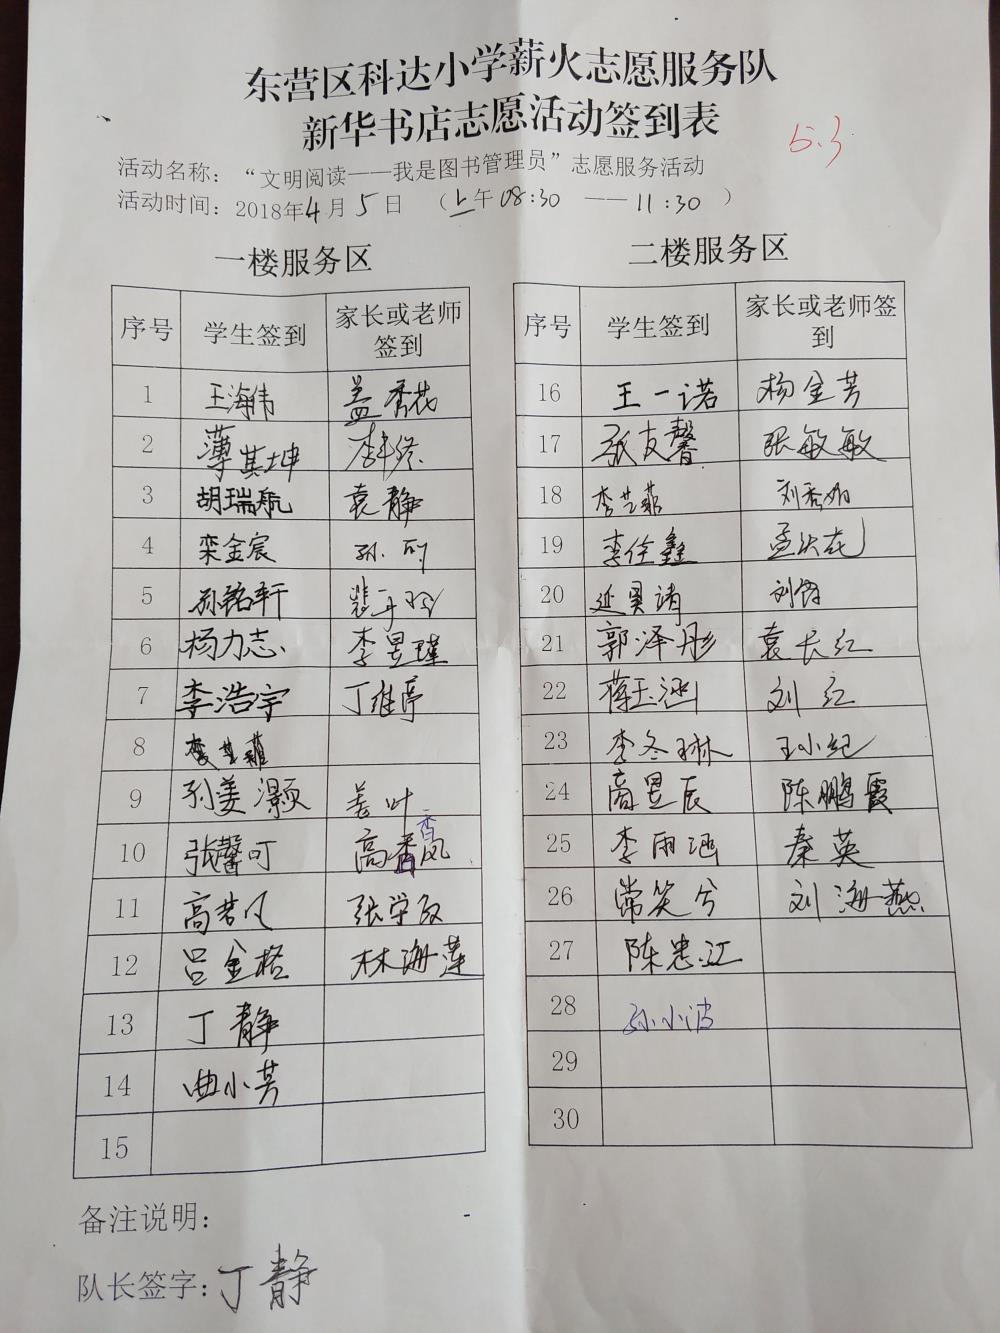 东营区科达小学薪火志愿服务队
新华书店志愿活动签到表
5.3
活动名称：“文明阅读——我是图书管理员”志愿服务活动
活动时间：2018年4月5日 （上午08:30 ——11:30 ）
一楼服务区
序号 学生签到 家长或老师签到
1 王海伟 盖秀花
2 薄其坤
3 胡瑞航 袁静
4 栾金宸 孙
5 孙铭轩
6 杨力志 李昱瑾
7 李浩宇 丁维亭
8 李艺菲
9 孙姜灏 姜叶
10 张馨可 高香风
11 高若凡
12 吕金格 林海莲
13 丁静
14 曲小芳
15
二楼服务区
序号 学生签到 家长或老师签到
16 王一诺 杨金芳
17 张友馨 张敏敏
18 李艺菲 刘秀如
19 李佳鑫
20 刘
21 郭泽彤 袁长红
22 蒋玉涵 刘红
23 李冬琳 王小纪
24 高昱辰 陈鹏霞
25 李雨涵 秦英
26 常笑兮 刘海燕
27 陈忠江
28 孙小波
29
30
备注说明：
队长签字：丁静